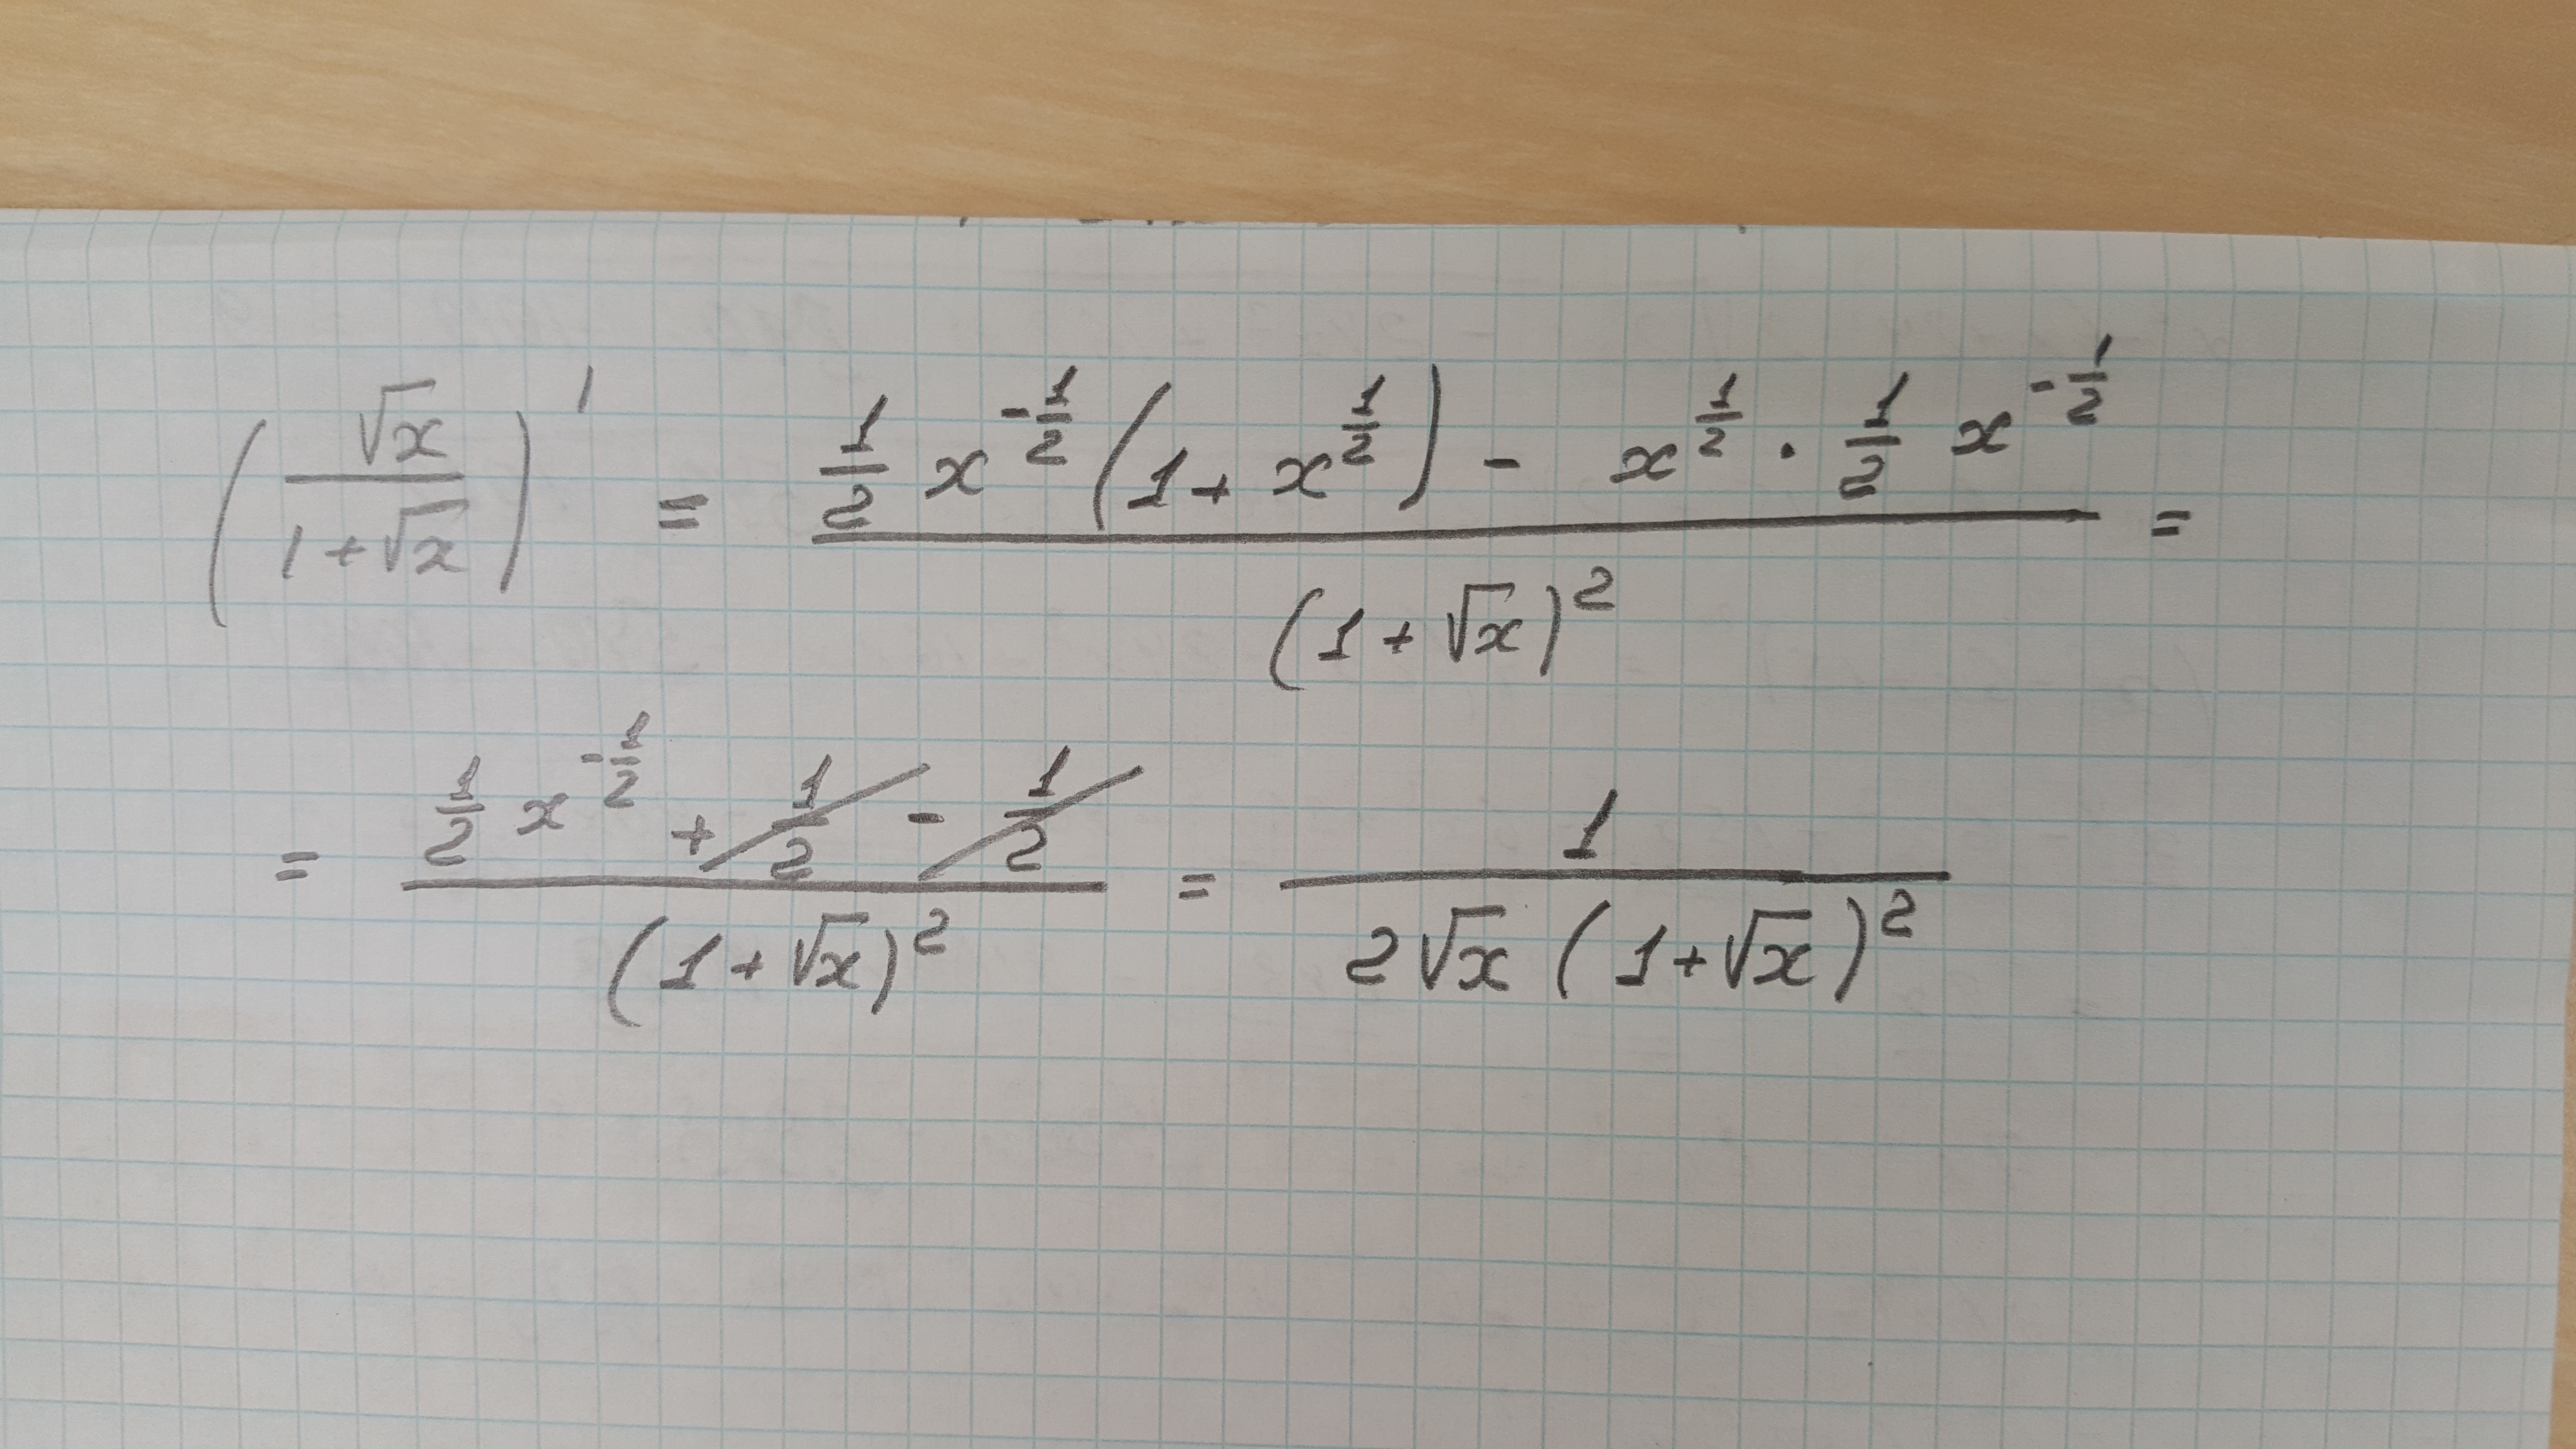 (√x / (1+√x))' = (1/2 x^(-1/2) (1 + x^(1/2)) - x^(1/2) · 1/2 x^(-1/2)) / (1 + √x)^2 =
= (1/2 x^(-1/2) + 1/2 - 1/2) / (1 + √x)^2 = 1 / (2√x (1+√x)^2)